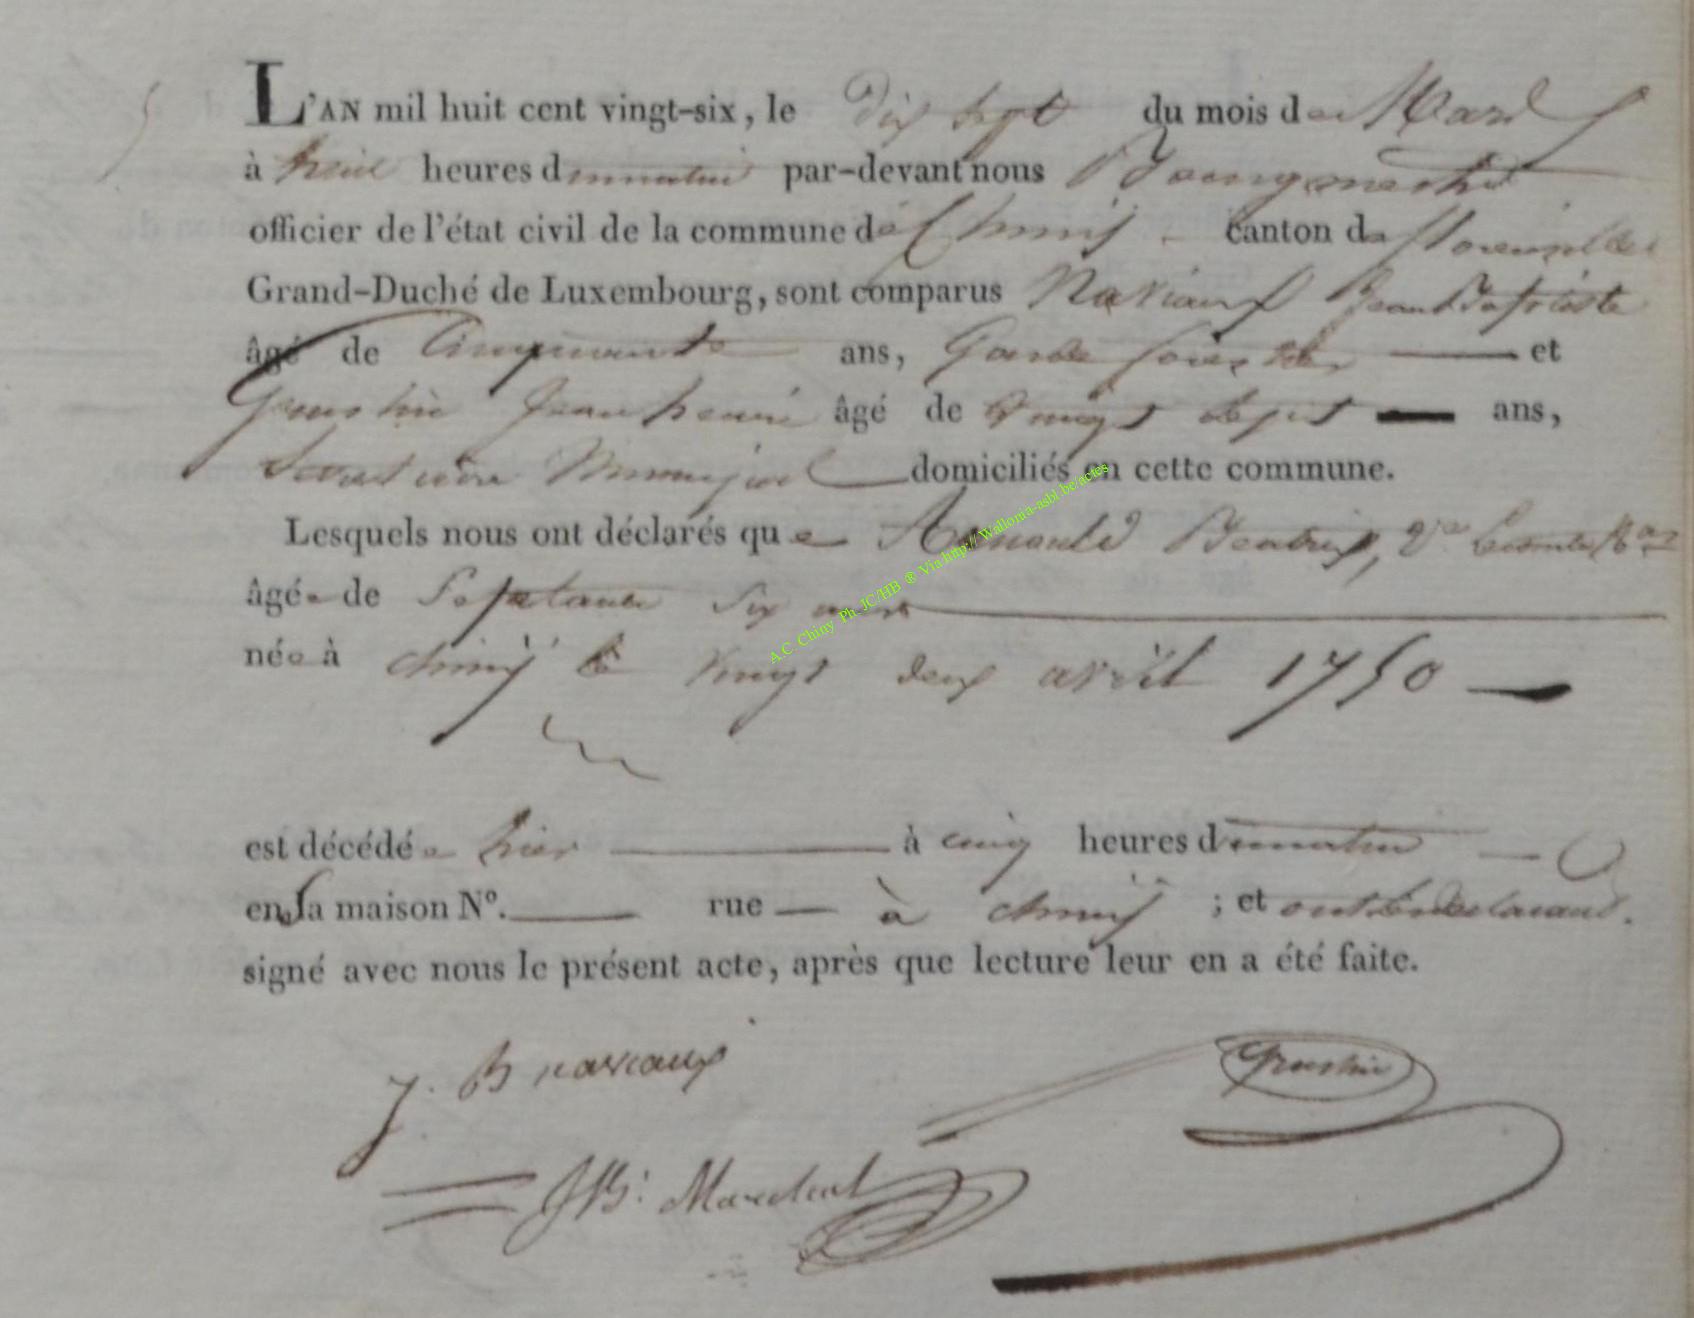 L'AN mil huit cent vingt-six, le dix Sept du mois de Mars
à heures du matin par-devant nous Bourgmestre
officier de l'état civil de la commune de Chiny canton de florenville
Grand-Duché de Luxembourg, sont comparus Naviaux Jean Baptiste
âgé de Cinquante ans, Garde forestier et
Grustin Jean henri âgé de Vingt Sept ans,
Secretaire Municipal domiciliés en cette commune.
Lesquels nous ont déclarés que Arnould Beatrix, Ve
âgée de Septante Six ans
née à chiny le vingt deux avril 1750
est décédée hier à cinq heures du matin
en sa maison N°. rue à chiny ; et ont les declarans
signé avec nous le présent acte, après que lecture leur en a été faite.
J. B naviaux
Grustin
JB: Marechal
A.C. Chiny Ph. JC/HB ® Via http://Wallonia-asbl.be/actes